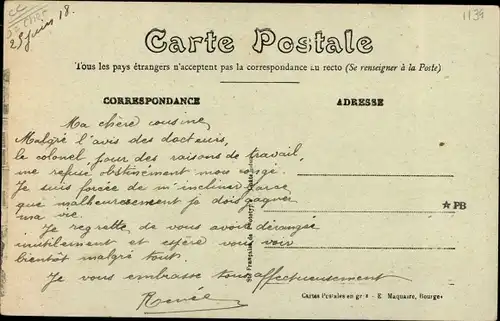 25 juin 18.
1139
Carte Postale
Tous les pays étrangers n'acceptent pas la correspondance au recto (Se renseigner à la Poste)
CORRESPONDANCE
ADRESSE
Ma chère cousine,
Malgré l'avis des docteurs,
le colonel, pour des raisons de travail,
me refuse obstinément mon congé.
Je suis forcée de m'incliner parce
que malheureusement je dois gagner
ma vie.
Je regrette de vous avoir dérangée
inutilement et espère vous voir
bientôt malgré tout.
Je vous embrasse tous affectueusement
Renée
★PB
Cartes Postales en gros - E. Maquaire, Bourges